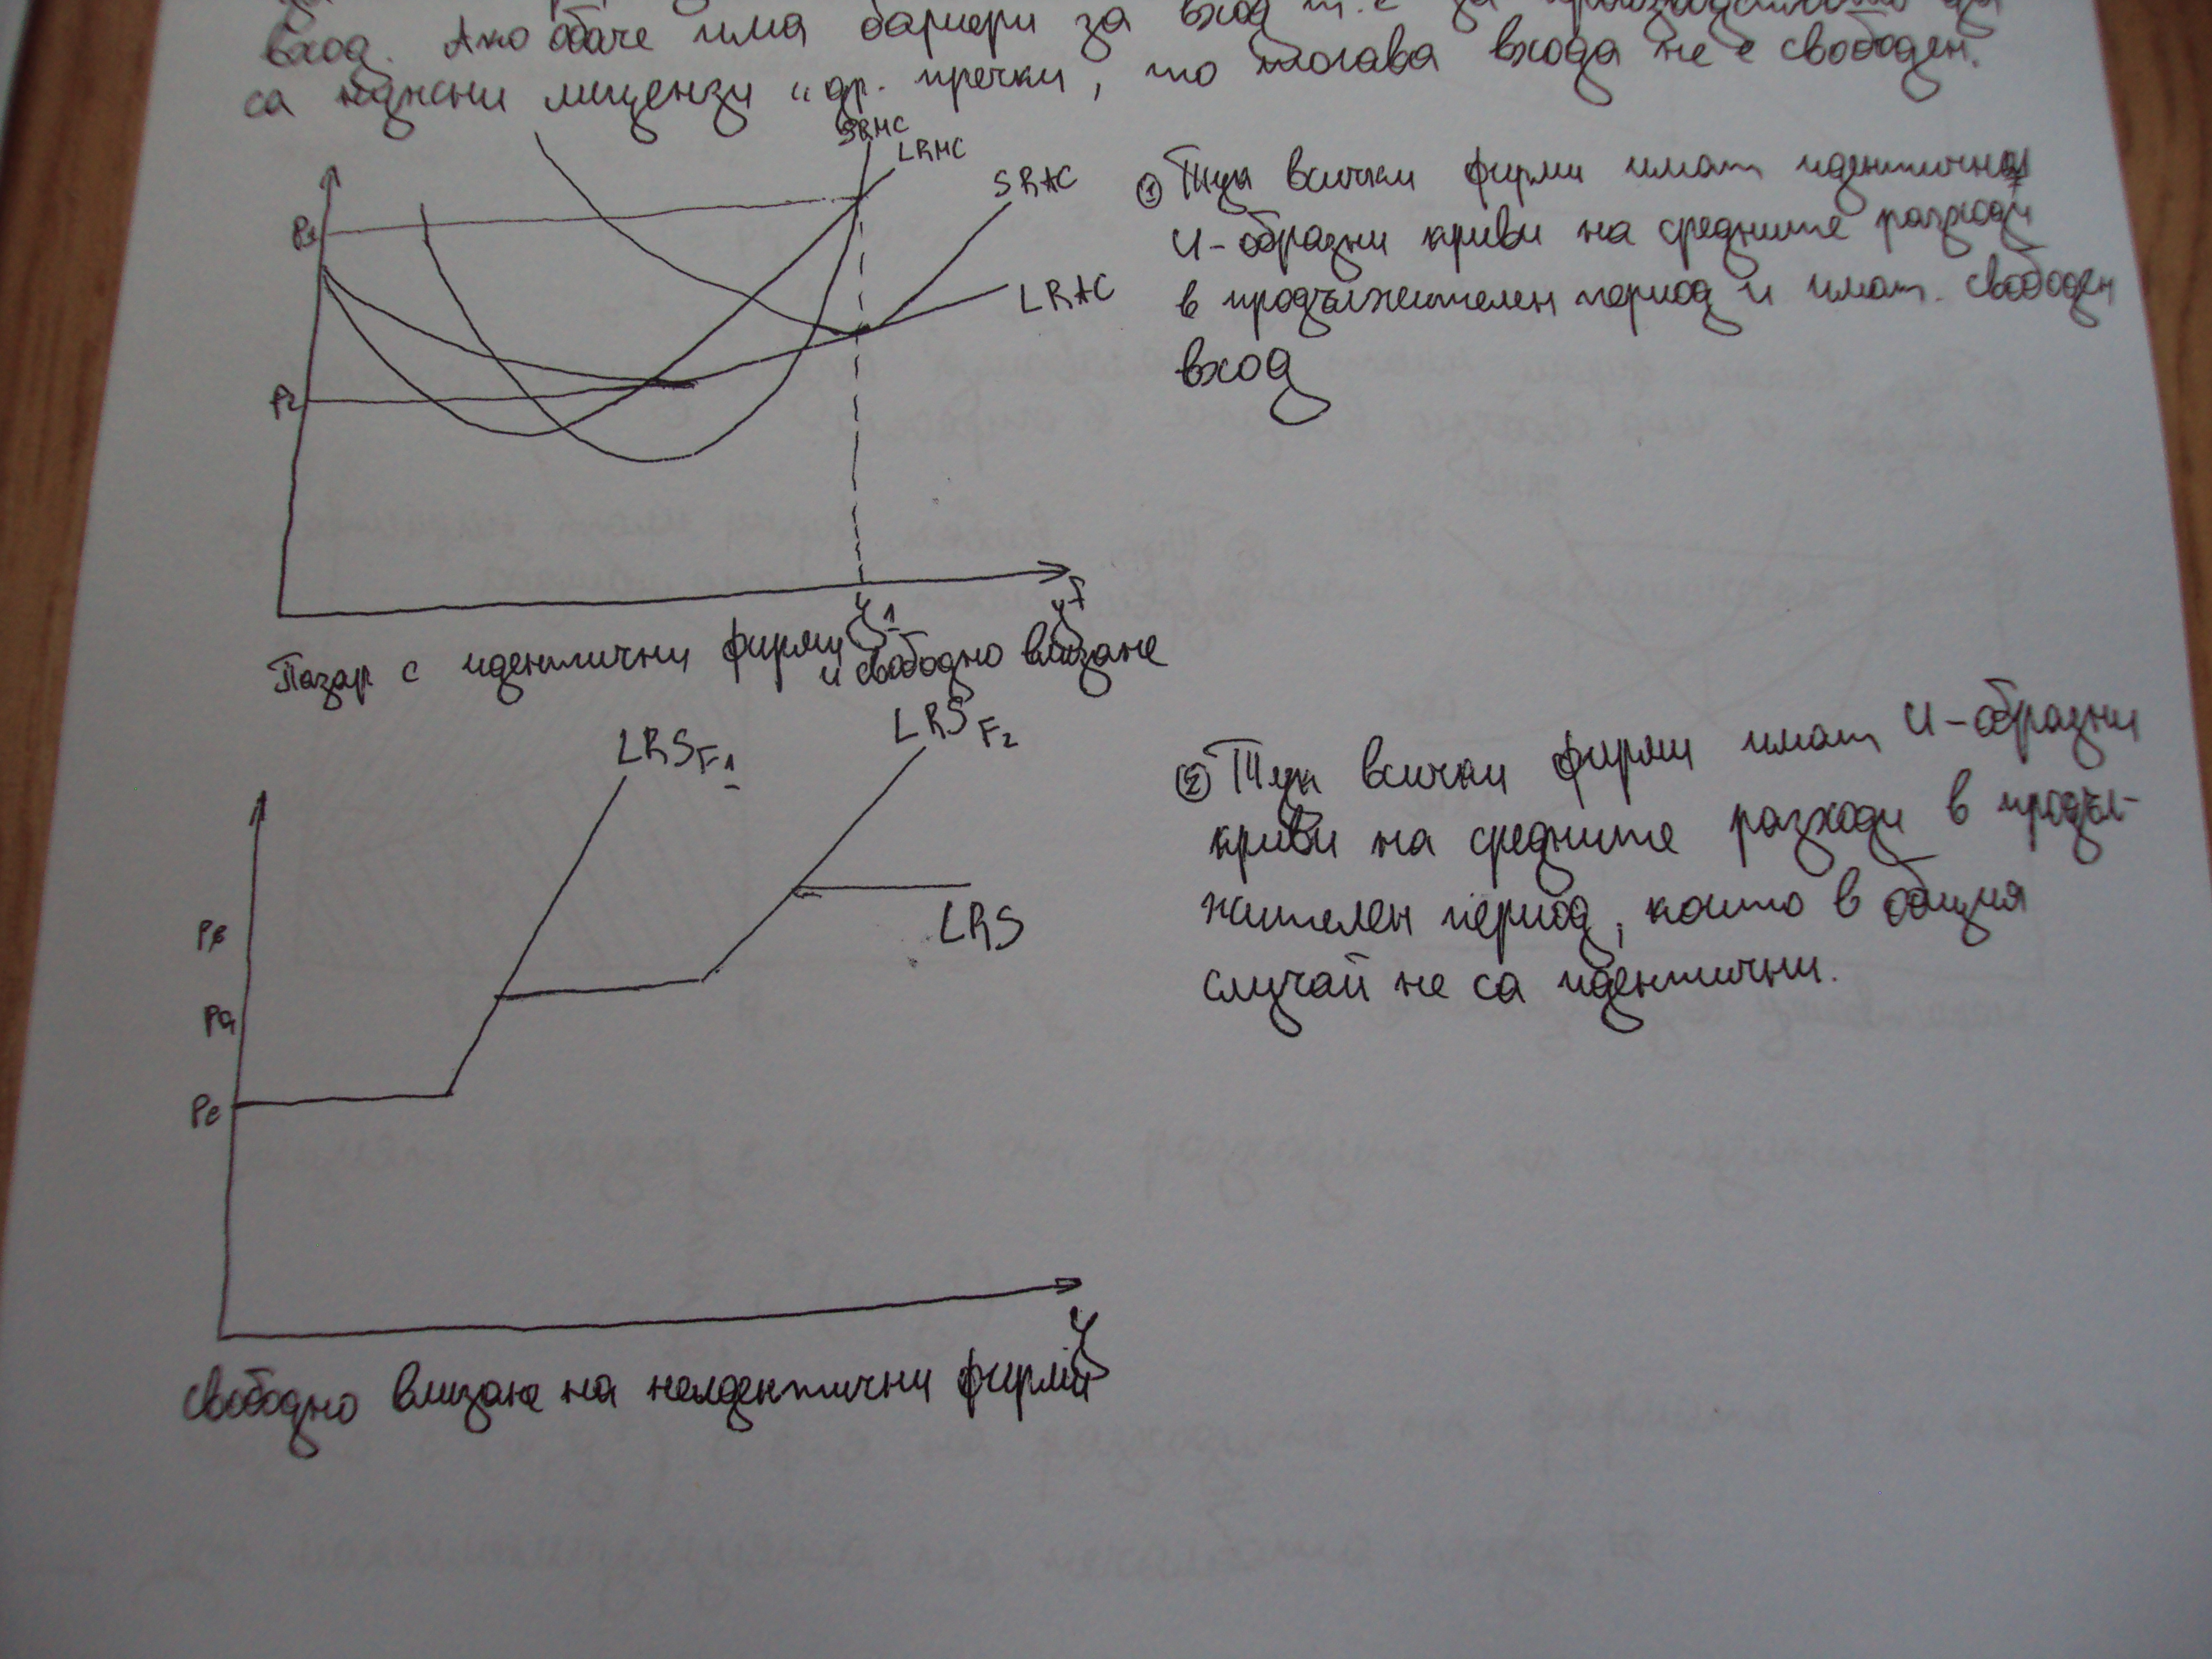 вход. Ако обаче има бариери за вход т.е за производството да
са нужни лицензи и др. пречки, то тогава входа не е свободен.
SRMC
LRMC
SRAC
LRAC
P1
P2
y1
yF
Пазар с идентични фирми
и свободно влизане
① Тук всички фирми имат идентични
U-образни криви на средните разходи
в продължителен период и имат свободен
вход
LRSF1
LRSF2
LRS
Pa
Pe
y
② Тук всички фирми имат U-образни
криви на средните разходи в продъл-
жителен период, които в общия
случай не са идентични.
Свободно влизане на неидентични фирми